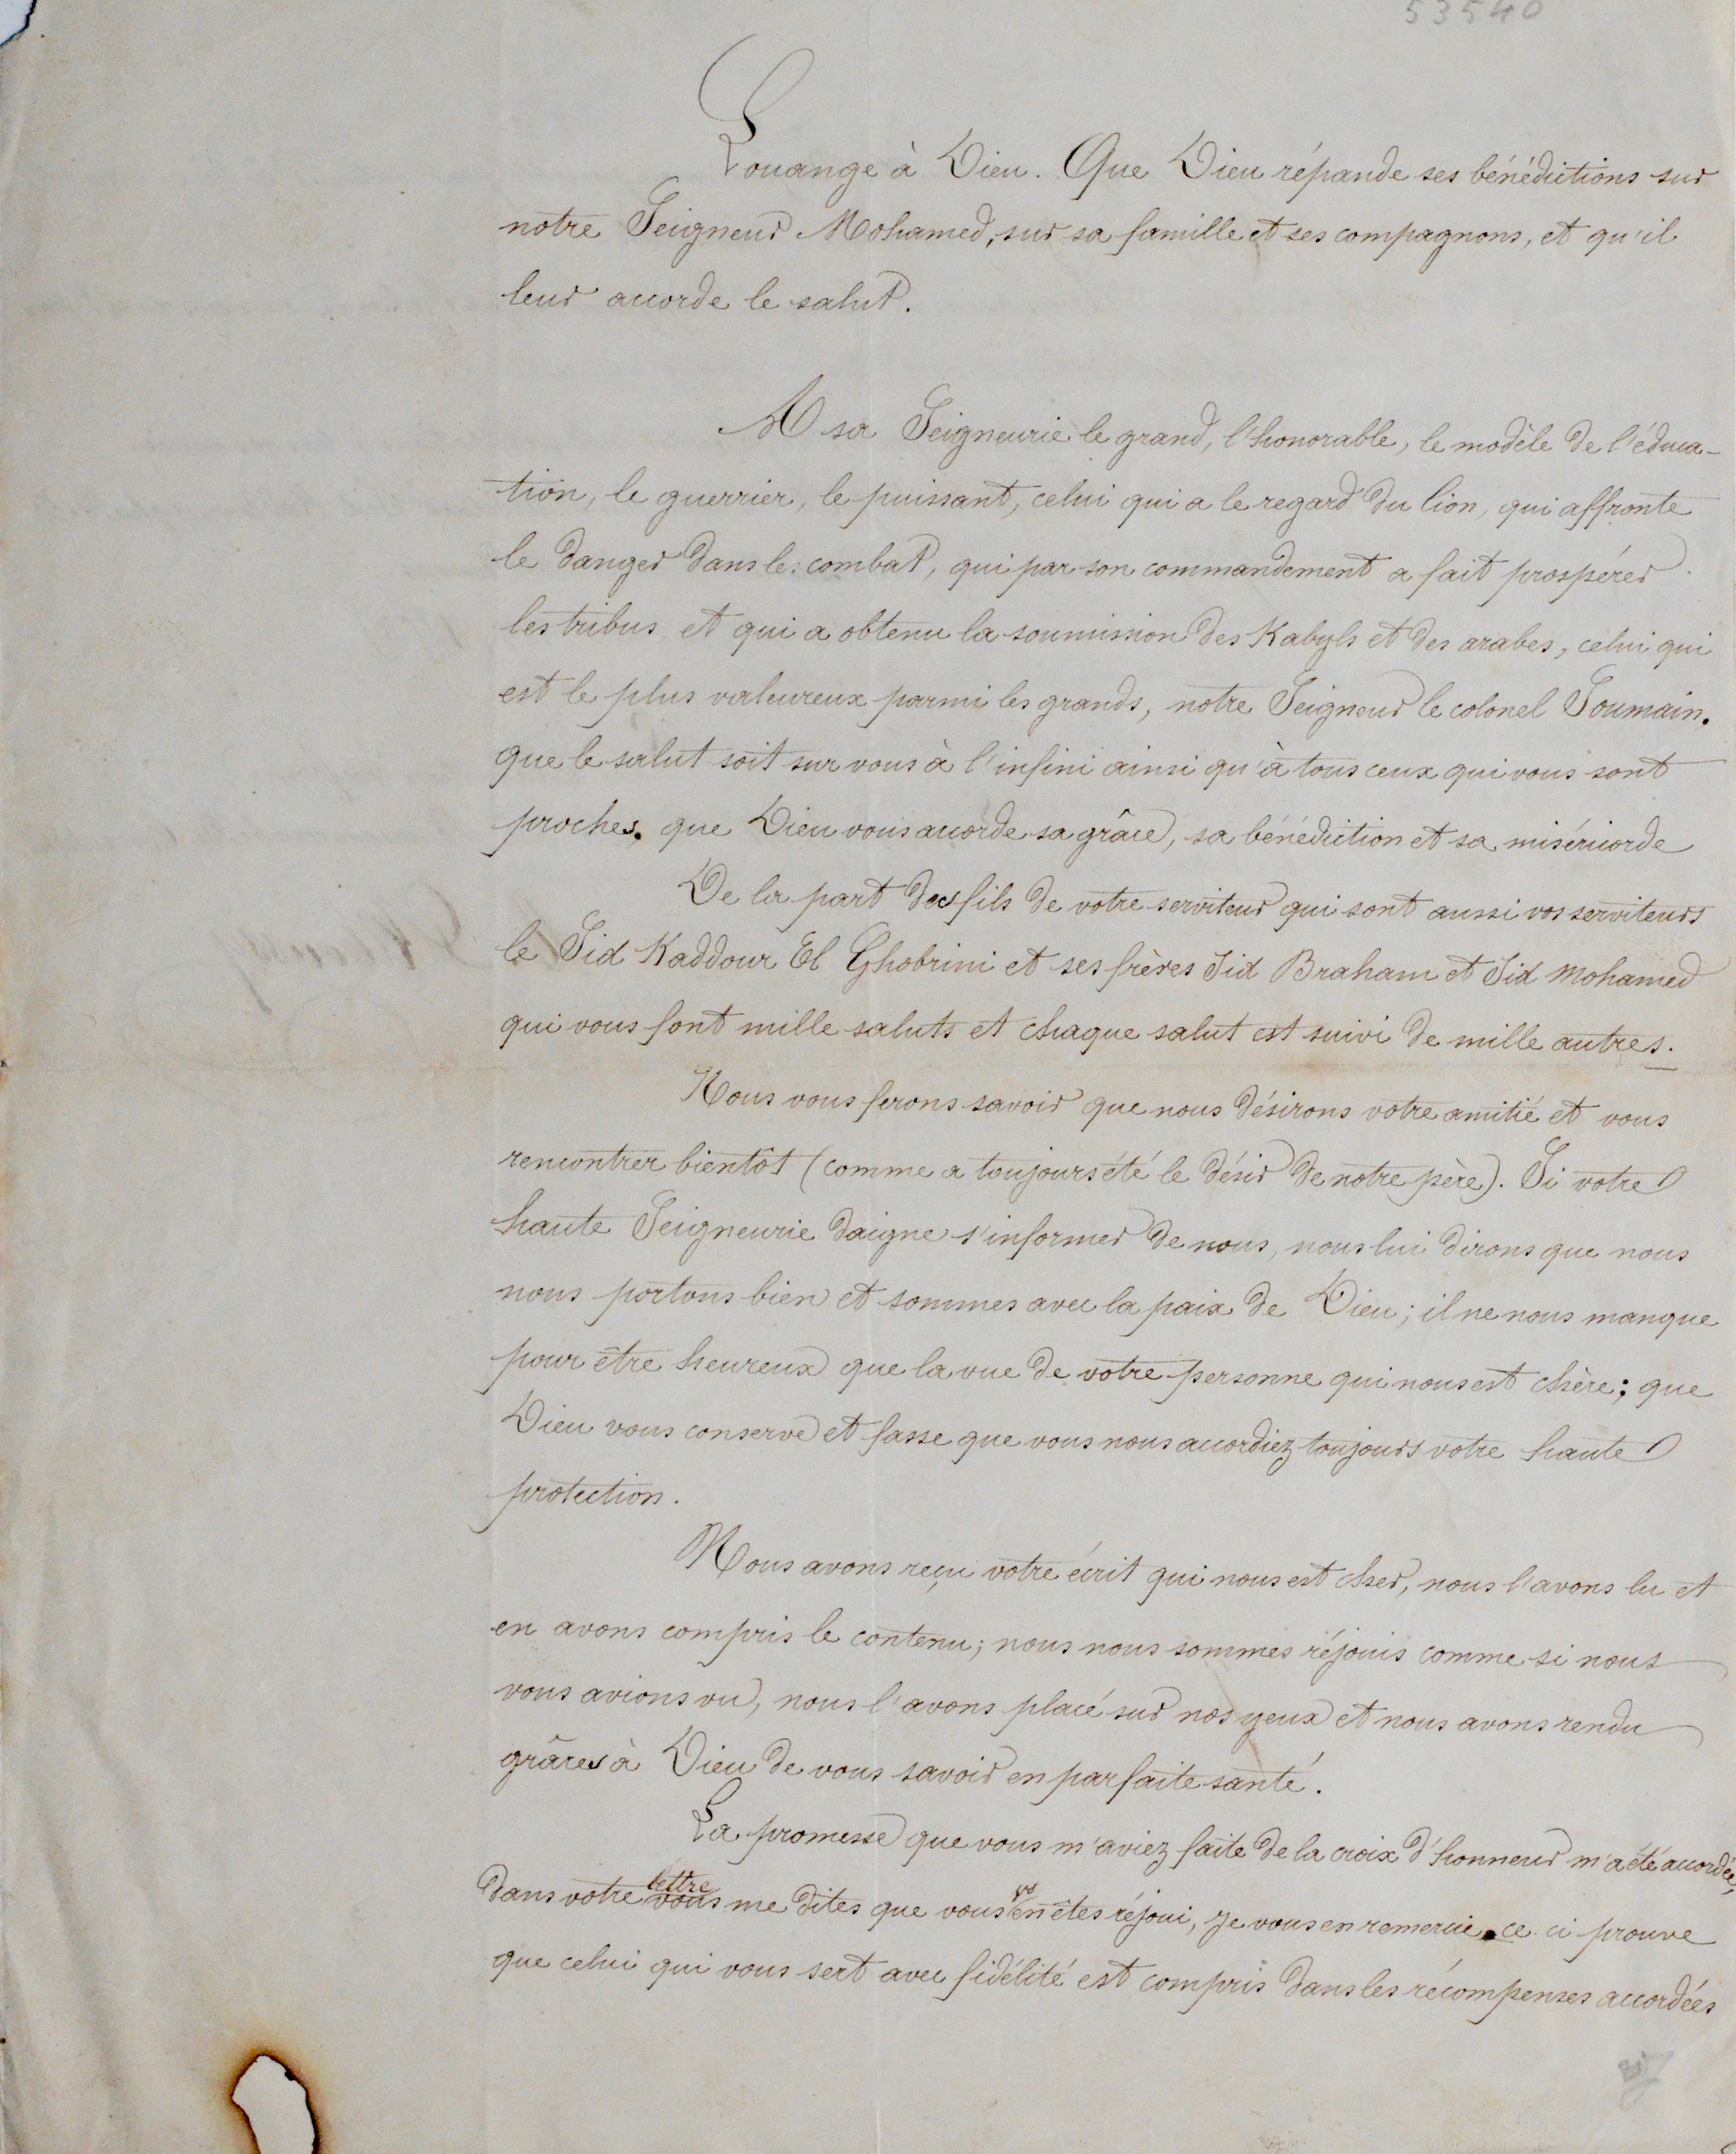 53540
Louange à Dieu. Que Dieu répande ses bénédictions sur
notre Seigneur Mohamed, sur sa famille et ses compagnons, et qu'il
leur accorde le salut.
A sa Seigneurie le grand, l'honorable, le modèle de l'éduca-
tion, le guerrier, le puissant, celui qui a le regard du lion, qui affronte
le danger dans le combat, qui par son commandement a fait prospérer
les tribus et qui a obtenu la soumission des Kabyls et des arabes, celui qui
est le plus valeureux parmi les grands, notre Seigneur le colonel Soumain.
que le salut soit sur vous à l'infini ainsi qu'à tous ceux qui vous sont
proches. que Dieu vous accorde sa grâce, sa bénédiction et sa miséricorde
De la part des fils de votre serviteur qui sont aussi vos serviteurs
le Sid Kaddour El Ghobrini et ses frères Sid Braham et Sid Mohamed
qui vous font mille saluts et chaque salut est suivi de mille autres.
Nous vous ferons savoir que nous désirons votre amitié et vous
rencontrer bientôt (comme a toujours été le désir de notre père). Si votre
haute Seigneurie daigne s'informer de nous, nous lui dirons que nous
nous portons bien et sommes avec la paix de Dieu; il ne nous manque
pour être heureux que la vue de votre personne qui nous est chère; que
Dieu vous conserve et fasse que vous nous accordiez toujours votre haute
protection.
Nous avons reçu votre écrit qui nous est cher, nous l'avons lu et
en avons compris le contenu; nous nous sommes réjouis comme si nous
vous avions vu, nous l'avons placé sur nos yeux et nous avons rendu
grâces à Dieu de vous savoir en parfaite santé.
La promesse que vous m'aviez faite de la croix d'honneur m'a été accordée,
dans votre lettre vous me dites que vous vs en êtes réjoui, je vous en remercie. ce ci prouve
que celui qui vous sert avec fidélité est compris dans les récompenses accordées